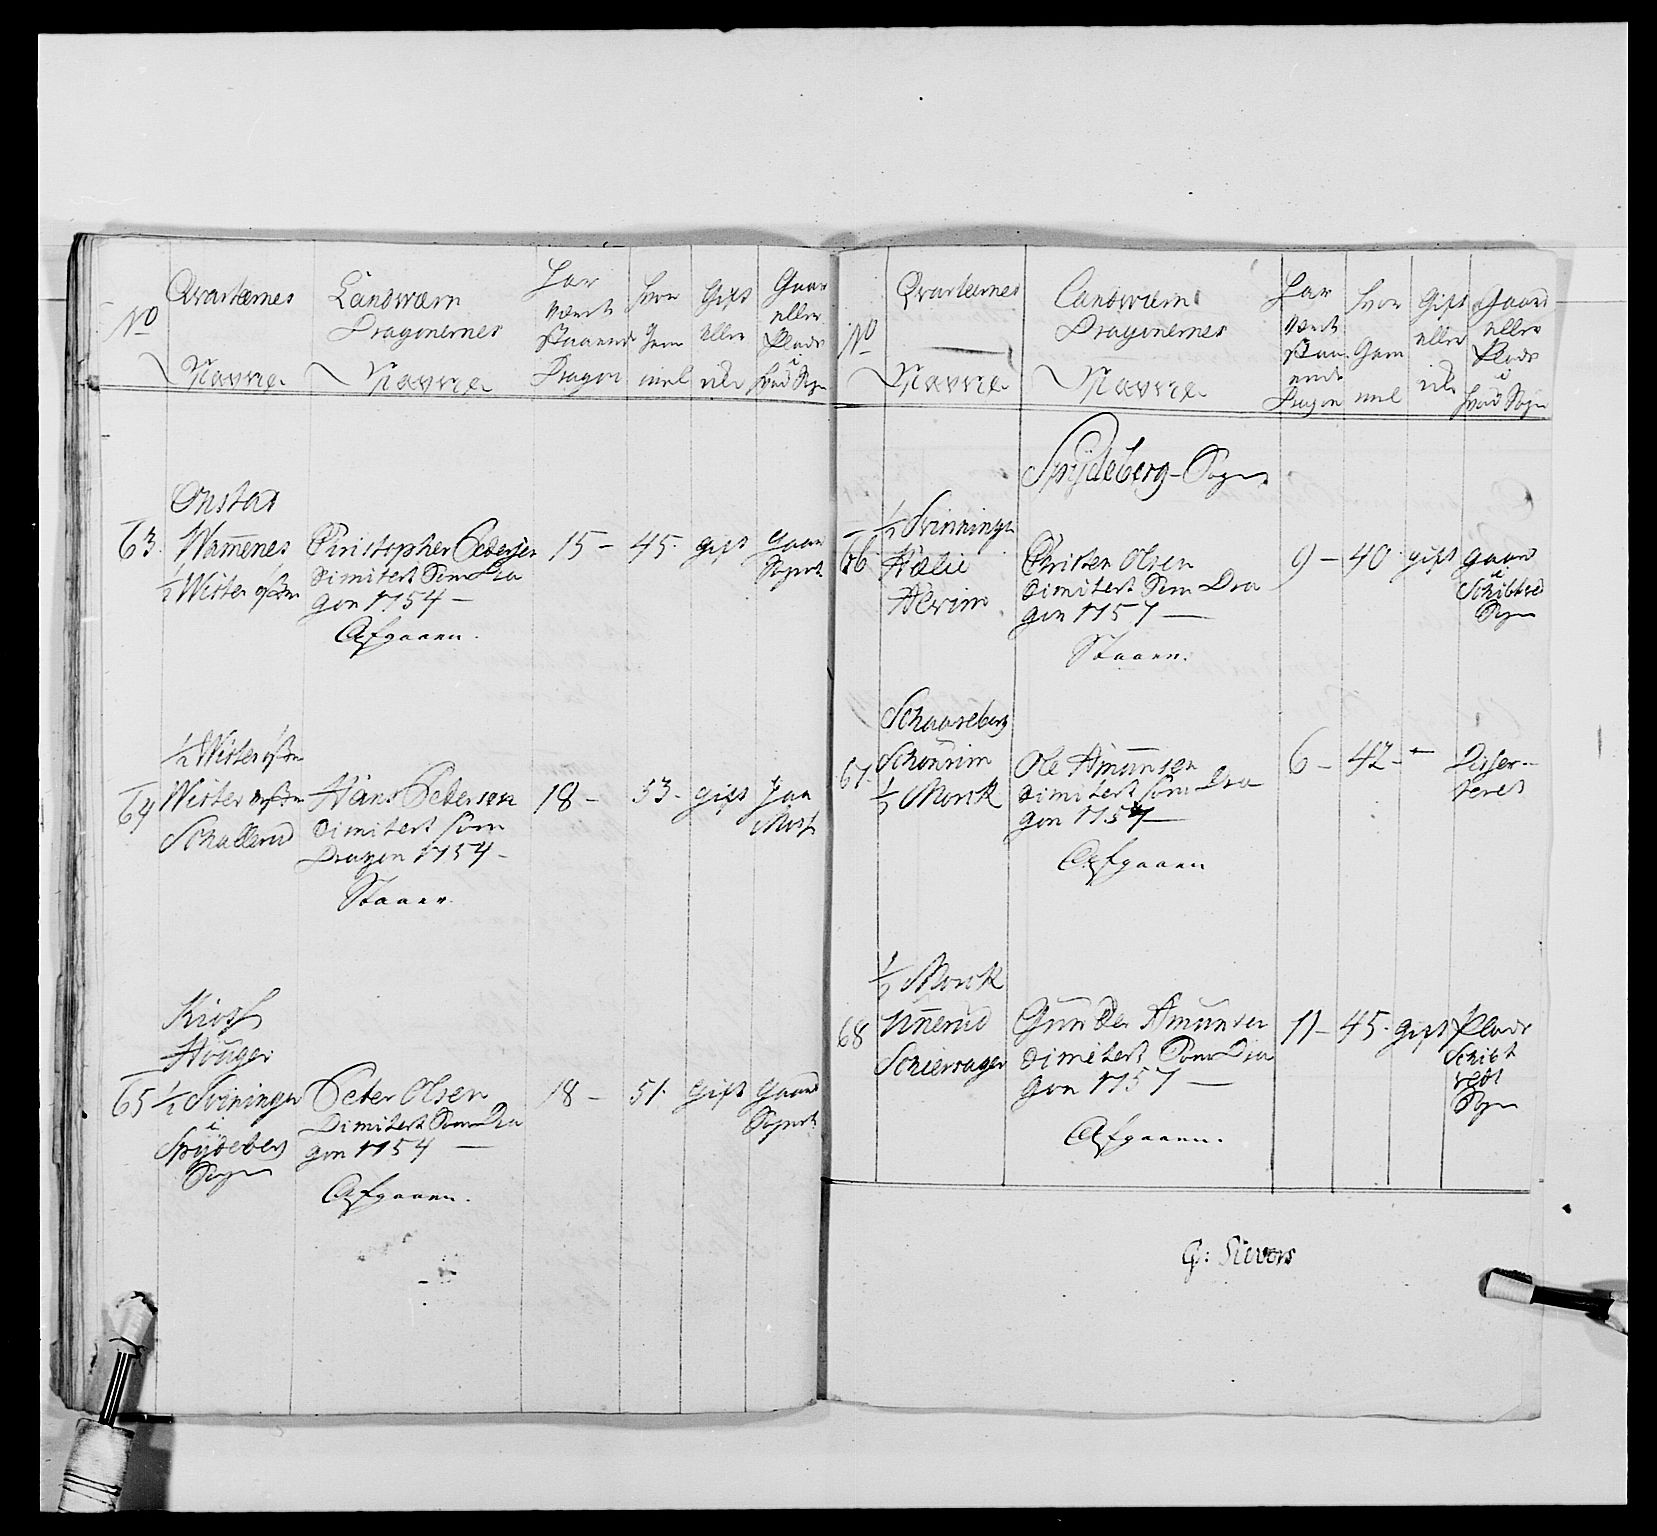 No
Qvarterernes
Navne
Landværn
Dragonernes
Navne
Har
Været
Staaende
Dragon
Hvor
Gam
mel
Gift
eller
ei
Gaard
eller
Plads
i
hvad Sogn
63.
Onstad
Wammenes
1/2 Wister
Christopher Pedersen
Dimitert Som Dra
gon 1754 —
Afgaaen.
15 —
45.
gift
Gaard
64
1/2 Wister
Wister
Schallerud
Hans Pedersen
Dimitert som
Dragon 1754 -
Staaer.
18 —
53.
gift
65
Krosh
Houger
1/2 Svininger
i
Spydeberg
Sogn
Peder Olsen
Dimitert Som Dra
gon 1754 —
Afgaaen.
18 —
51.
gift
Gaard
No
Qvarterernes
Navne
Landværn
Dragonernes
Navne
Har
Været
Staa
ende
Dragon
Hvor
Gam
mel
Gift
eller
ei
Gaard
eller
Plads
i
hvad Sogn
Spydeberg - Sogn
66
1/2 Svinninger
Hælie
Alvim
Christen Olsen
Dimitert Som Dra
gon 1757 —
Staaer.
9 —
40
gift
gaard
i
Schibtved
Sogn
67
Schaareberg
Schonrim
1/2 Morck
Ole Amunsen
Dimitert som Dra
gon 1757 —
Afgaaen
6 —
42 —
Deser-
teret
68
1/2 Morck
Unnerud
Schiervagen
Gunder Amunsen
Dimitert Som Dra
gon 1757 —
Afgaaen.
11 —
45.
gift
Plads
Schibt
vedt
Sogn
G: Sievers